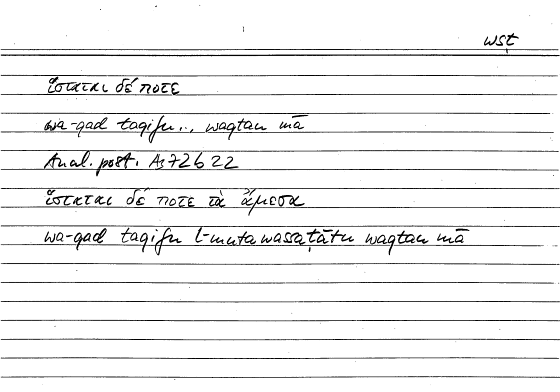 wsṭ
ἵσταται δέ ποτε
wa-qad taqifu... waqtan mā
Anal. post. A3 72b22
ἵσταται δέ ποτε τὰ ἄμεσα
wa-qad taqifu l-mutawassaṭātu waqtan mā